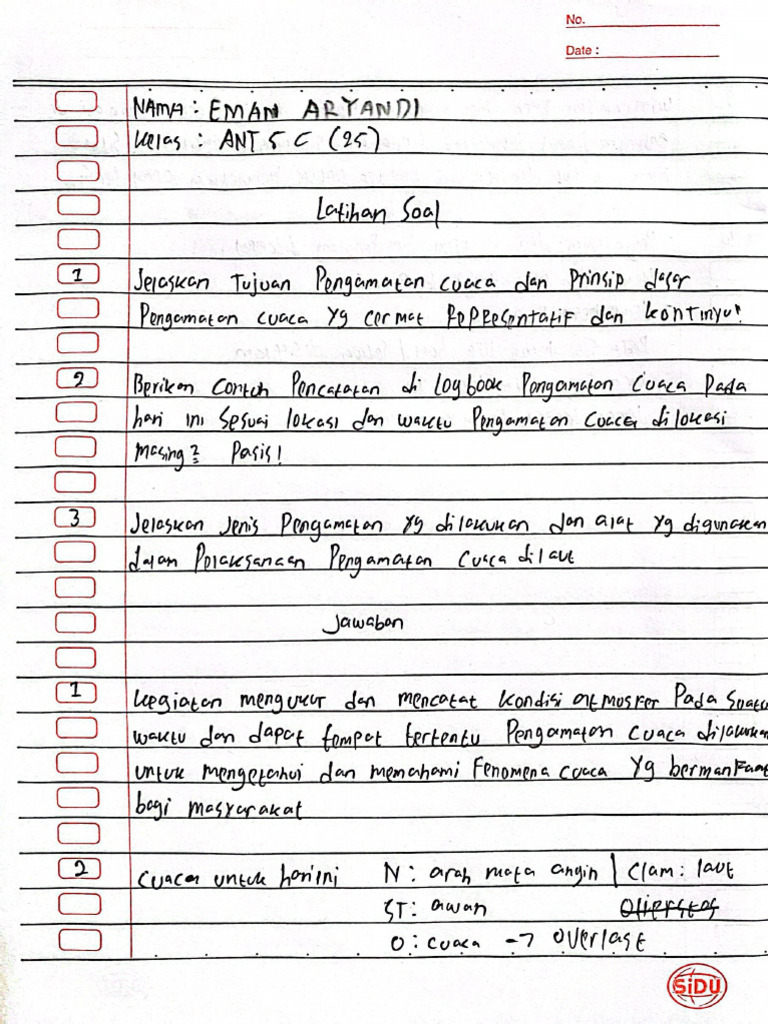 No.
Date :
NAMA : EMAN ARYANDI
Kelas : ANT 5 C (25)
Latihan Soal
1 Jelaskan Tujuan Pengamatan cuaca dan Prinsip dasar
Pengamatan cuaca yg cermat Representatif dan kontinyu!
2 Berikan Contoh Pencatatan di Logbook Pengamatan Cuaca Pada
hari ini Sesuai lokasi dan waktu Pengamatan Cuaca di lokasi
masing2 Pasis!
3 Jelaskan Jenis Pengamatan yg dilakukan dan alat yg digunakan
dalam Pelaksanaan Pengamatan Cuaca di laut
Jawaban
1 kegiatan mengukur dan mencatat kondisi atmosfer Pada Suatu
waktu dan dapat tempat tertentu Pengamatan cuaca dilakukan
untuk mengetahui dan memahami Fenomena cuaca yg bermanfaat
bagi masyarakat
2 Cuaca untuk hari ini N : arah mata angin | Clam : laut
ST : awan
O : cuaca → overlast
SiDU